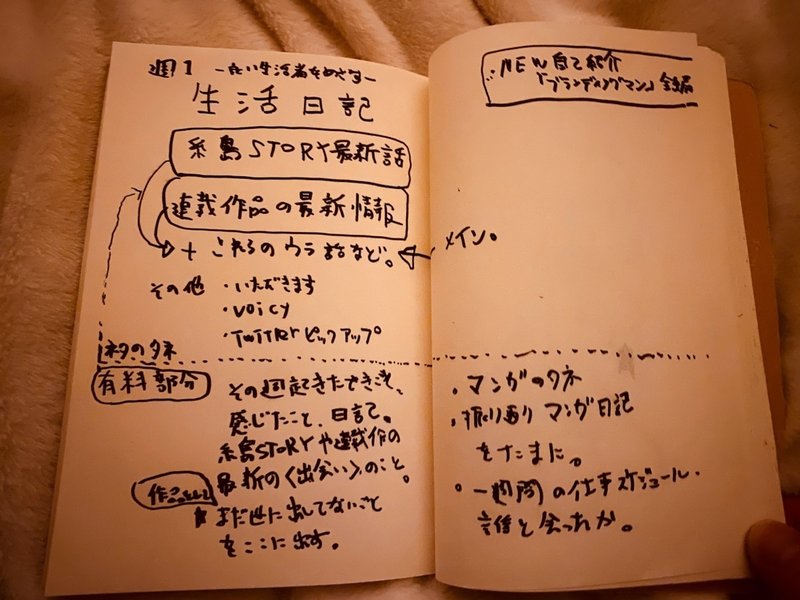 週1 ーたい生活者をめざすー
生活日記
糸島STORY最新話
連載作品の最新情報
+ これらのウラ話など。
メイン。
その他 ・いただきます
・voicy
・Twitterピックアップ
ネタのタネ
有料部分
その週起きたできごと、
感じたこと、日記。
糸島STORYや連載作の
最新の〈出会い〉のこと。
作品として
まだ世に出してないこと
をここに出す。
NEW自己紹介
「ブランディングマン」全編
・マンガのタネ
・振り返り マンガ日記
をたまに。
・一週間の仕事スケジュール・
誰と会ったか。